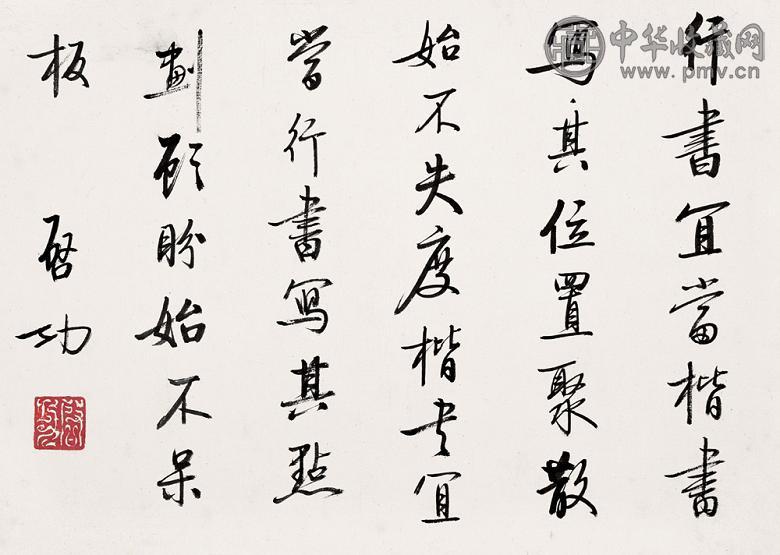 行書宜當楷書
寫其位置聚散
始不失度楷书宜
當行書寫其點
劃顧盼始不呆
板
啓功
中华收藏网
www.pmv.cn